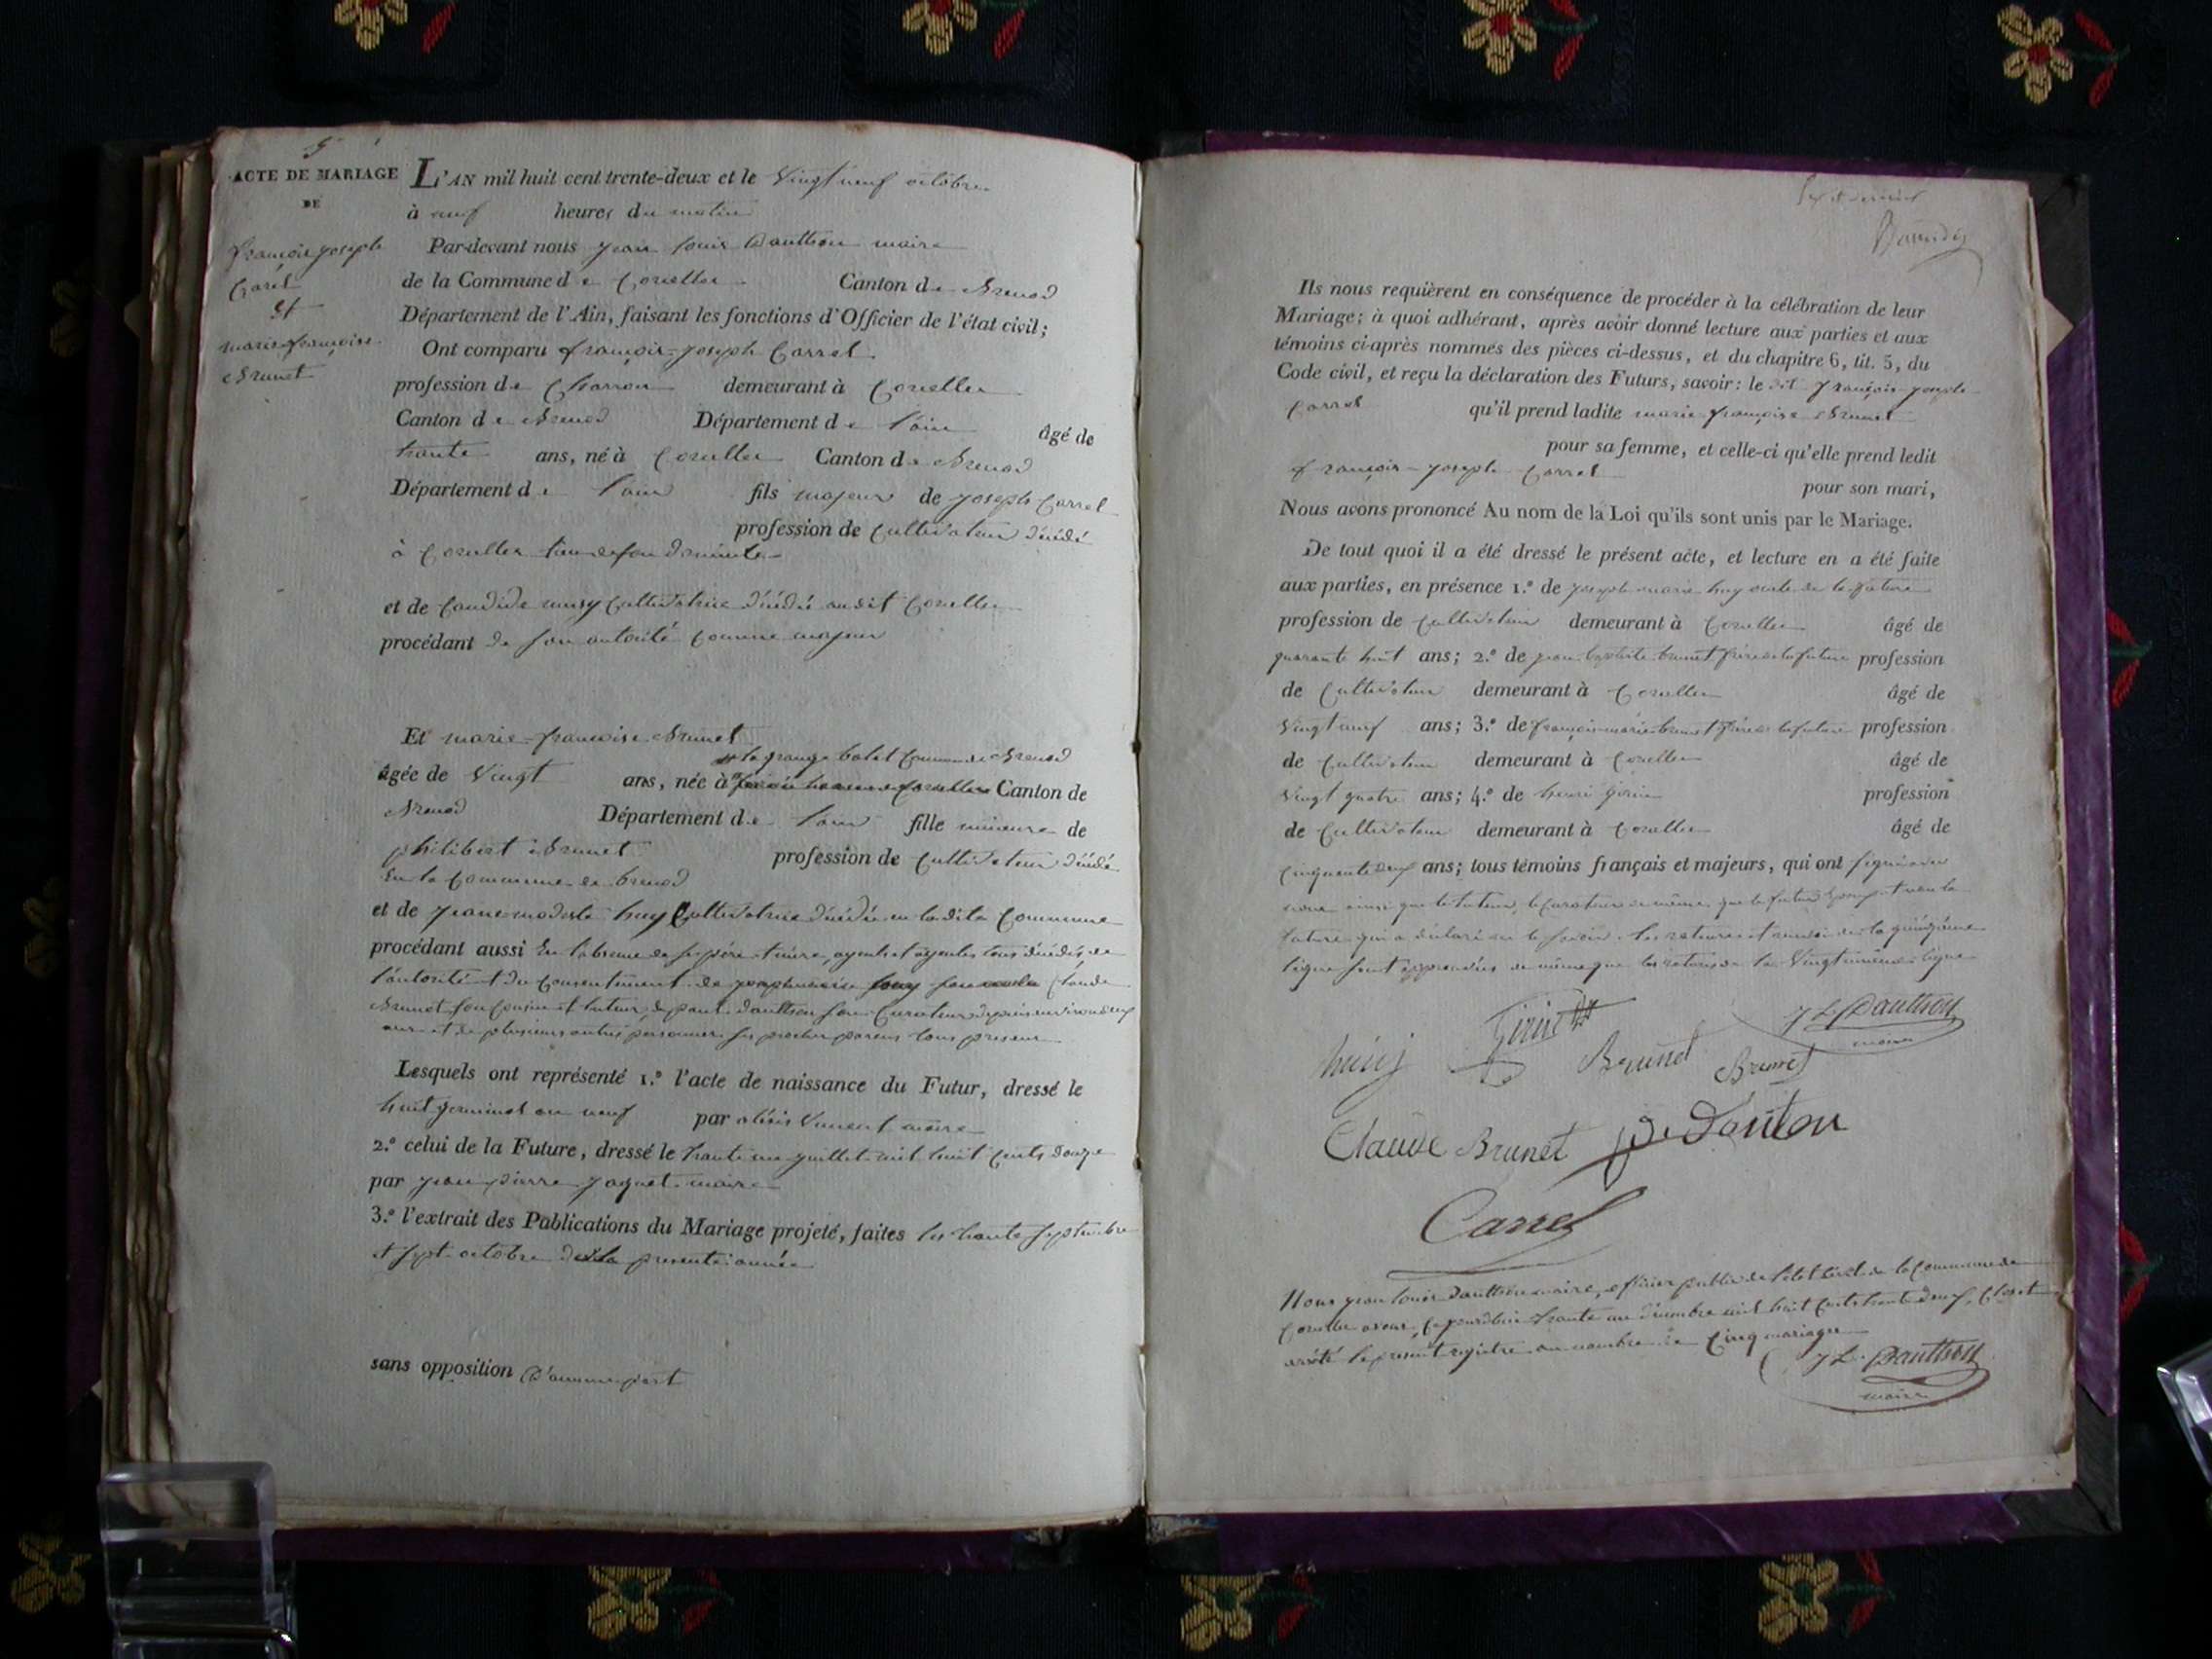 5
ACTE DE MARIAGE
DE
françois joseph
Carel
et
marie françoise
Brunet
L'AN mil huit cent trente-deux et le Vingt neuf octobre
à neuf heures du matin
Par-devant nous jean louis Dauthon maire
de la Commune de Corcelles Canton de Brenod
Département de l'Ain, faisant les fonctions d'Officier de l'état civil;
Ont comparu françois-joseph Carrel
profession de Charron demeurant à Corcelles
Canton de Brenod Département de l'ain âgé de
trente ans, né à Corcelles Canton de Brenod
Département de l'ain fils majeur de joseph Carrel
profession de Cultivateur décédé
à Corcelles lieu de son domicile
et de Candide Cultivatrice décédée audit Corcelles
procédant de son autorité comme majeur
Et marie-françoise Brunet
la grange commune de Brenod
âgée de Vingt ans, née à Canton de
Brenod Département de l'ain fille mineure de
philibert Brunet profession de Cultivateur décédé
En la Commune de brenod
et de jeane modeste huy Cultivatrice décédée en ladite Commune
procédant aussi En l'absence de ses père et mère, ayeuls et ayeules tous décédés, de
l'autorité et du Consentement de Claude
Brunet son Cousin et tuteur, de son Curateur depuis environ deux
ans et de plusieurs autres personnes ses proches parens tous presens
Lesquels ont représenté 1.º l'acte de naissance du Futur, dressé le
huit germinal an neuf par aléxis Vincent maire
2.º celui de la Future, dressé le trente un juillet mil huit Cents douze
par jean pierre jaquet maire
3.º l'extrait des Publications du Mariage projeté, faites les trente septembre
et sept octobre de la presente année
sans opposition d'aucune part
Ils nous requièrent en conséquence de procéder à la célébration de leur
Mariage; à quoi adhérant, après avoir donné lecture aux parties et aux
témoins ci-après nommés des pièces ci-dessus, et du chapitre 6, tit. 5, du
Code civil, et reçu la déclaration des Futurs, savoir: le dit françois-joseph
Carrel qu'il prend ladite marie françoise Brunet
pour sa femme, et celle-ci qu'elle prend ledit
françois-joseph Carrel
pour son mari,
Nous avons prononcé Au nom de la Loi qu'ils sont unis par le Mariage.
De tout quoi il a été dressé le présent acte, et lecture en a été faite
aux parties, en présence 1.º de joseph marie huy oncle de la future
profession de Cultivateur demeurant à Corcelles âgé de
quarante huit ans; 2.º de jean baptiste brunet frère de la future profession
de Cultivateur demeurant à Corcelles âgé de
Vingt neuf ans; 3.º de françois marie brunet frère de la future profession
de Cultivateur demeurant à Corcelles âgé de
Vingt quatre ans; 4.º de henri girin profession
de Cultivateur demeurant à Corcelles âgé de
Cinquante deux ans; tous témoins français et majeurs, qui ont signé avec
nous ainsi que le tuteur, le Curateur de même que le futur Epoux et non la
future qui a déclaré ne le savoir
ligne sont approuvées de même que la Vingt ligne
huy Girin J L Dauthon
maire
Brunet Brunet
Claude Brunet
Carrel
Nous jean louis Dauthon maire, officier public de l'état Civil de la Commune de
Corcelles avons, Cejourd'hui trente un décembre mil huit Cents trente deux, Clos et
arrêté le present registre au nombre de Cinq mariages
J L Dauthon
maire